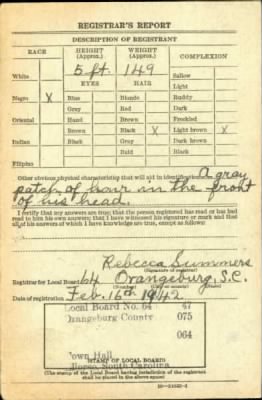 REGISTRAR'S REPORT
DESCRIPTION OF REGISTRANT
RACE HEIGHT (Approx.) WEIGHT (Approx.) COMPLEXION
5 ft. 149
White Sallow
EYES HAIR Light
Negro X Blue Blonde Ruddy
Gray Red Dark
Oriental Hazel Brown Freckled
Brown X Black X Light brown X
Indian Black Gray Dark brown
Bald Black
Filipino
Other obvious physical characteristics that will aid in identification A gray
patch of hair in the front
of his head.
I certify that my answers are true; that the person registered has read or has had
read to him his own answers; that I have witnessed his signature or mark and that
all of his answers of which I have knowledge are true, except as follows:
Rebecca Summers
(Signature of registrar)
Registrar for Local Board 64 Orangeburg, S.C.
(Number) (City or county) (State)
Date of registration Feb. 16th 1942
Local Board No. 64 47
Orangeburg County 075
064
Town Hall
South Carolina
STAMP OF LOCAL BOARD
(The stamp of the Local Board having jurisdiction of the registrant
shall be placed in the above space)